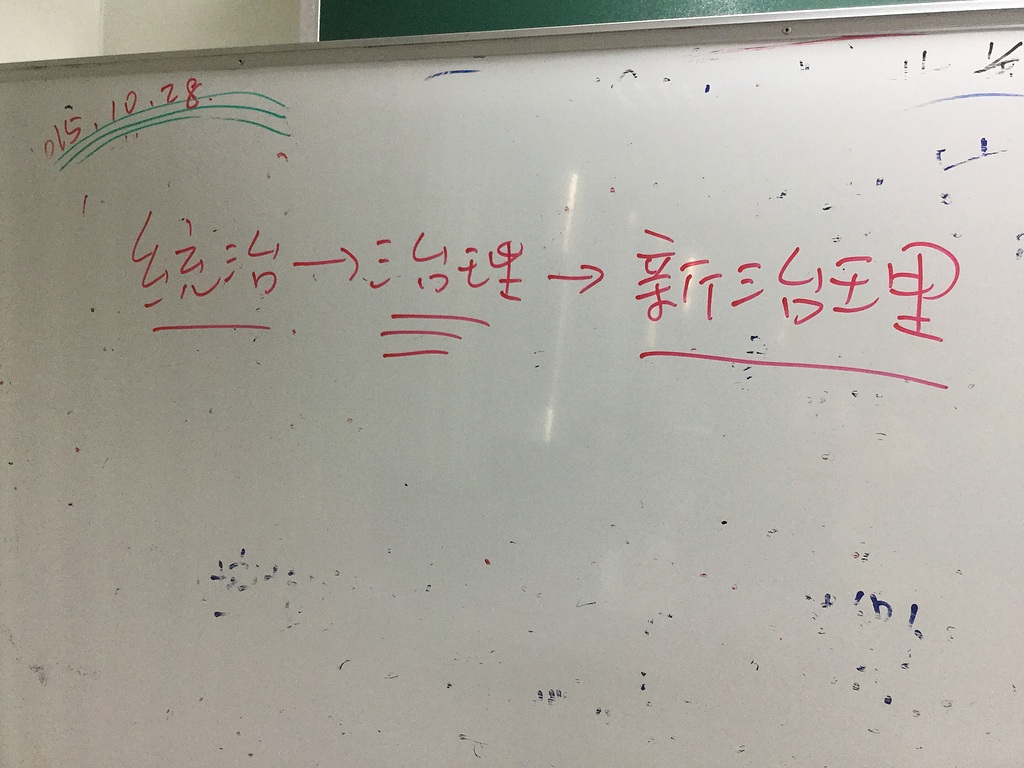 015.10.28
統治→治理→新治理